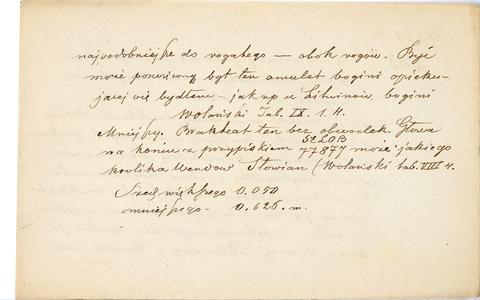 najpodobniejsze do rogatego — obok rogów. Być
może poświęcony był ten amulet bogini opieku-
jącej się bydłem — jak np u Litwinów bogini
Wolański Tab. IX. 1. H.
Mniejszy. Brakteat ten bez obwodek. Głowa
na koniu z przypiskiem może jakiego
królika Wendów Słowian (Wolański tab. VIII 4.
Śred. większego 0.050
mniejszego — 0.626. m.